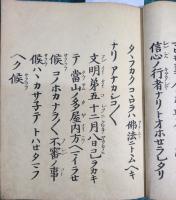 信心ノ行者ナリトオホセラレタリ
タヽフカクコヽロハ佛法ニトヽムヘキ
ナリアナカシコ〱
文明第五十二月八日コレヲカキ
テ當山ノ多屋内方ヘマイラセ
候コノホカナヲ〱不審ノ事
候ハヽカサ子テトハセタマフ
ヘク候